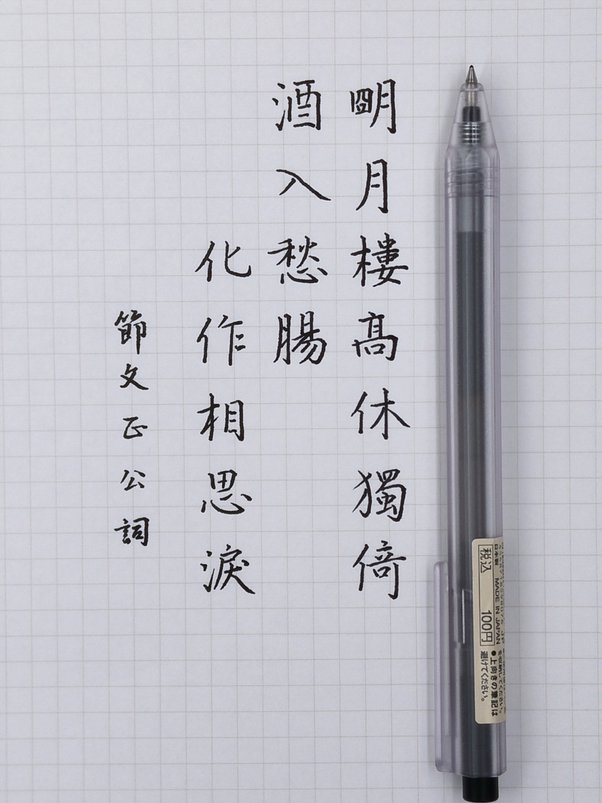 朙月樓高休獨倚
酒入愁腸
化作相思淚
節文正公詞
日本製 MADE IN JAPAN
税込 100円
●上向きの筆記は
避けてください。